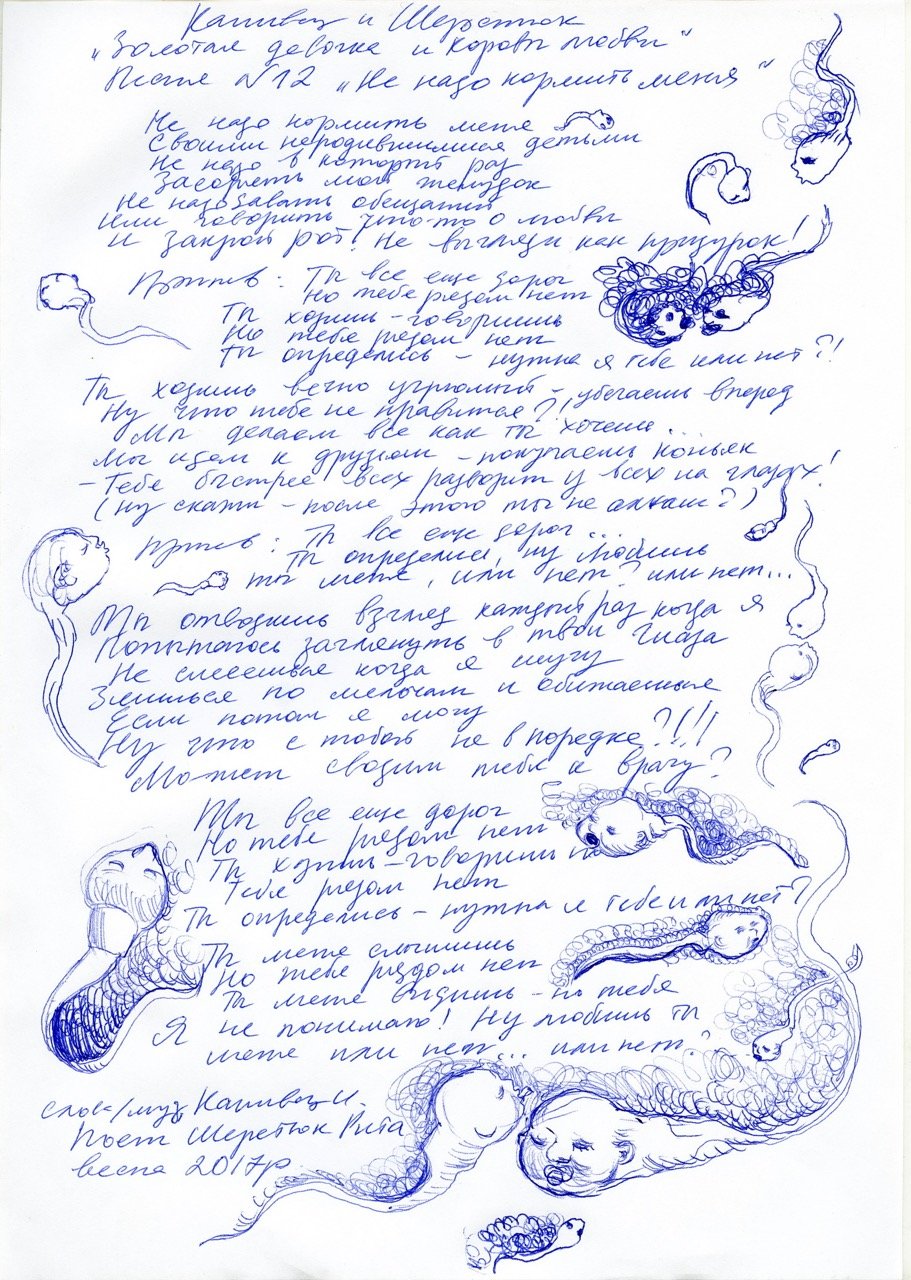 Капивец и Шеретюк
"Золотая девочка и коровы любви"
Песня N12 "Не надо кормить меня"
Не надо кормить меня
Своими неродившимися детьми
Не надо в который раз
Засорять мой желудок
Не надо давать обещаний
Или говорить что-то о любви
И закрой рот! Не выгляди как придурок!
Припев: Ты все еще дорог
Но тебе рядом нет
Ты ходишь - говоришь
Но тебе рядом нет
Ты определись - нужна я тебе или нет?!
Ты ходишь вечно угрюмый - убегаешь вперед
Ну что тебе не нравится?!
Мы делаем все как ты хочешь...
Мы идем к друзьям - покупаем коньяк
- Тебе быстрее всех развозит у всех на глазах!
(ну скажи - после этого ты не алкаш?)
Припев: Ты все еще дорог...
Ты определись, ну любишь
ты меня, или нет? или нет...
Ты отводишь взгляд каждый раз когда я
Попытаюсь заглянуть в твои глаза
Не смеешься когда я шучу
Злишься по мелочам и обижаешься
Если потом я могу
Ну что с тобой не в порядке?!!!
Может сводим тебя к врачу?
Ты все еще дорог
Но тебе рядом нет
Ты ходишь - говоришь но
Тебе рядом нет
Ты определись - нужна я тебе или нет?
Ты меня слышишь
Но тебе рядом нет
Ты меня видишь - но тебя
Я не понимаю! Ну любишь ты
меня или нет... или нет?
слова/муз Капивец И.
Поет Шеретюк Рита
весна 2017р